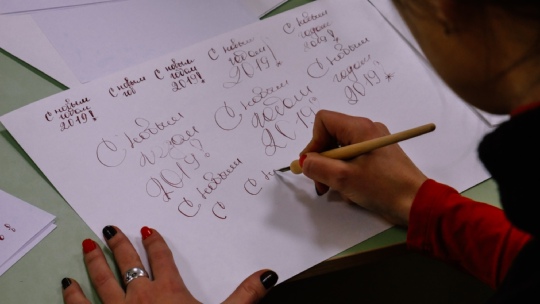 С новым
годом
2019!
С новым
год
С новым
годом
2019!
С новым
годом
2019!
С новым
годом
2019!
С новым
годом
2019!
С новым
годом
2019!
С новым
годом
2019!
С новым
С
С н